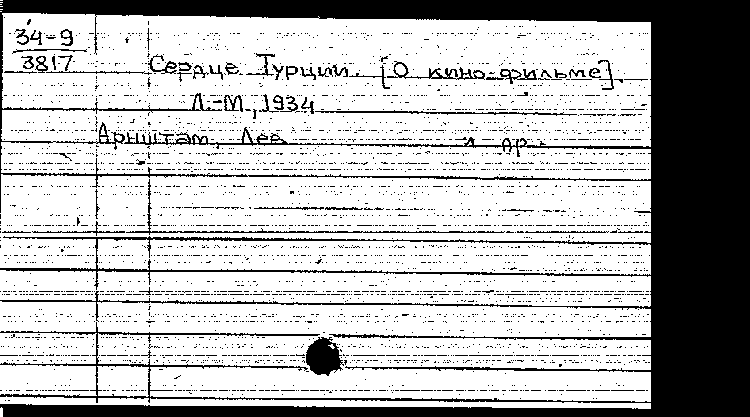 34-9
3817
Сердце Турции. [О кино-фильме].
Л.-М., 1934
Арнштам, Лев и др.